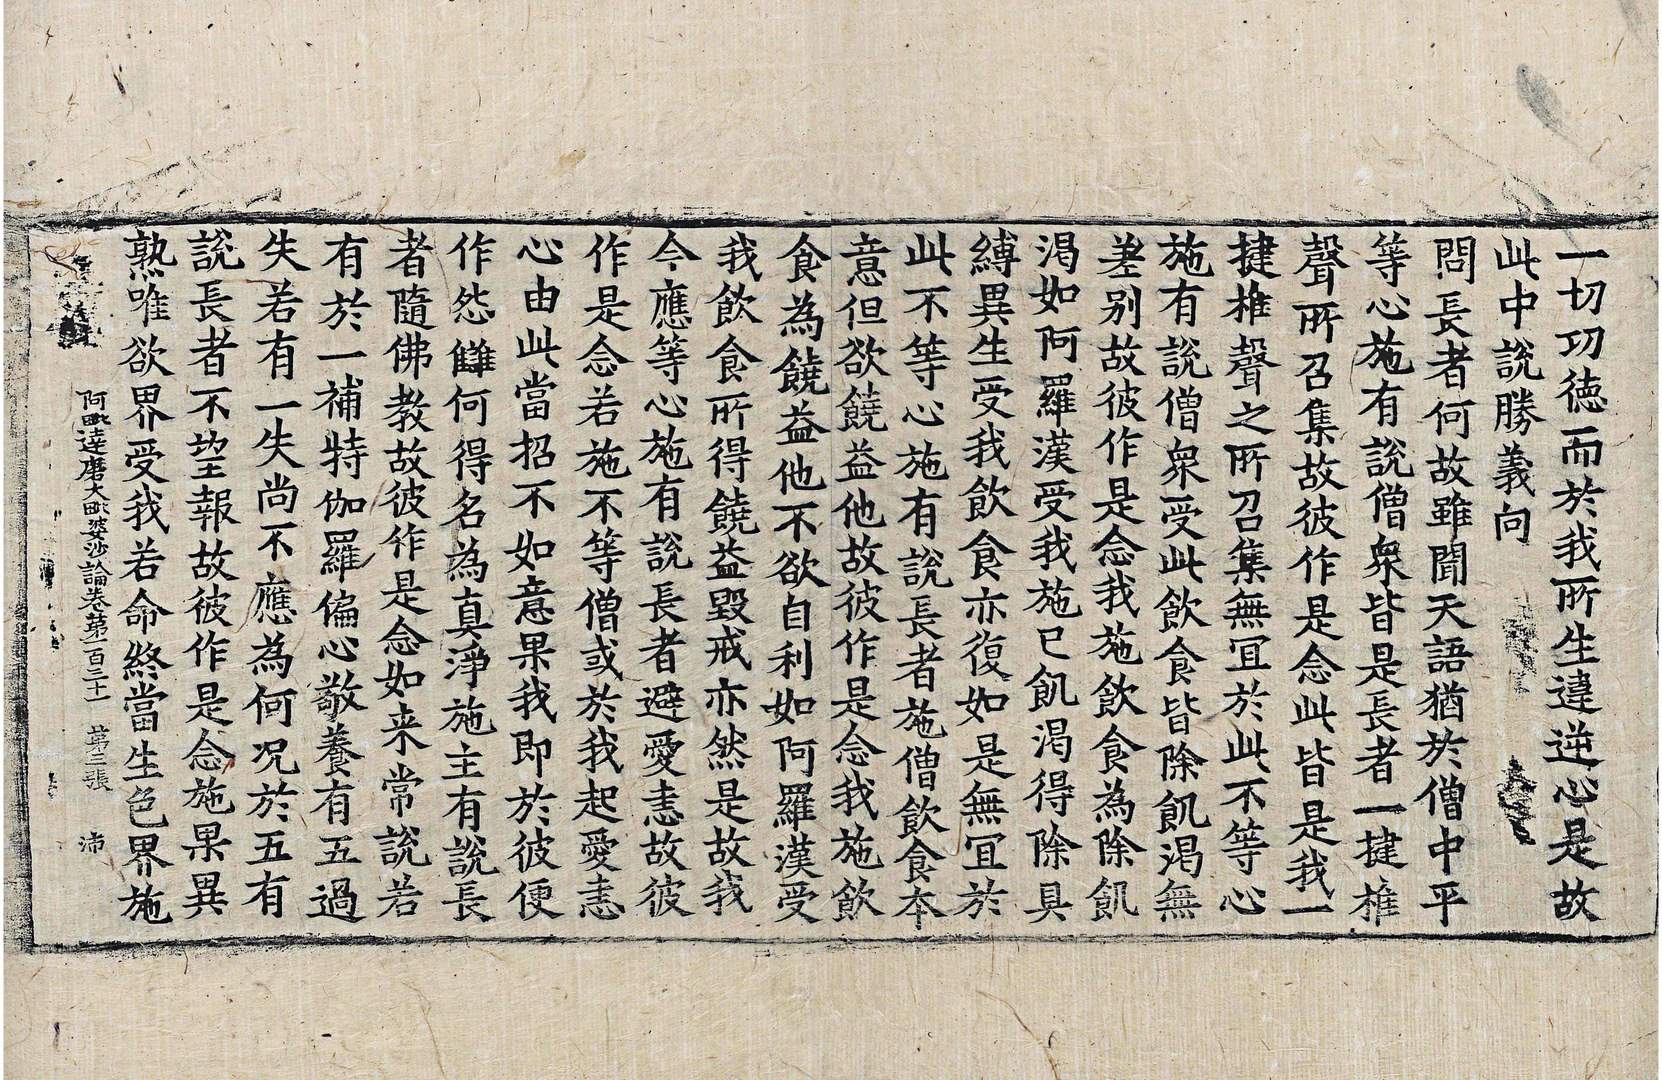 一切功徳而於我所生違逆心是故
此中說勝義向
問長者何故雖聞天語猶於僧中平
等心施有說僧衆皆是長者一揵椎
聲所召集故彼作是念此皆是我一
揵椎聲之所召集無冝於此不等心
施有說僧衆受此飲食皆除飢渴無
差别故彼作是念我施飲食為除飢
渴如阿羅漢受我施已飢渴得除具
縛異生受我飲食亦復如是無冝於
此不等心施有說長者施僧飲食本
意但欲饒益他故彼作是念我施飲
食為饒益他不欲自利如阿羅漢受
我飲食所得饒益毀戒亦然是故我
今應等心施有說長者避愛恚故彼
作是念若施不等僧或於我起愛恚
心由此當招不如意果我即於彼便
作怨讎何得名為真淨施主有說長
者隨佛教故彼作是念如来常說若
有於一補特伽羅偏心敬養有五過
失若有一失尚不應為何况於五有
說長者不望報故彼作是念施果異
熟唯欲界受我若命終當生色界施
阿毗達磨大毗婆沙論卷第一百三十一 第三張 沛